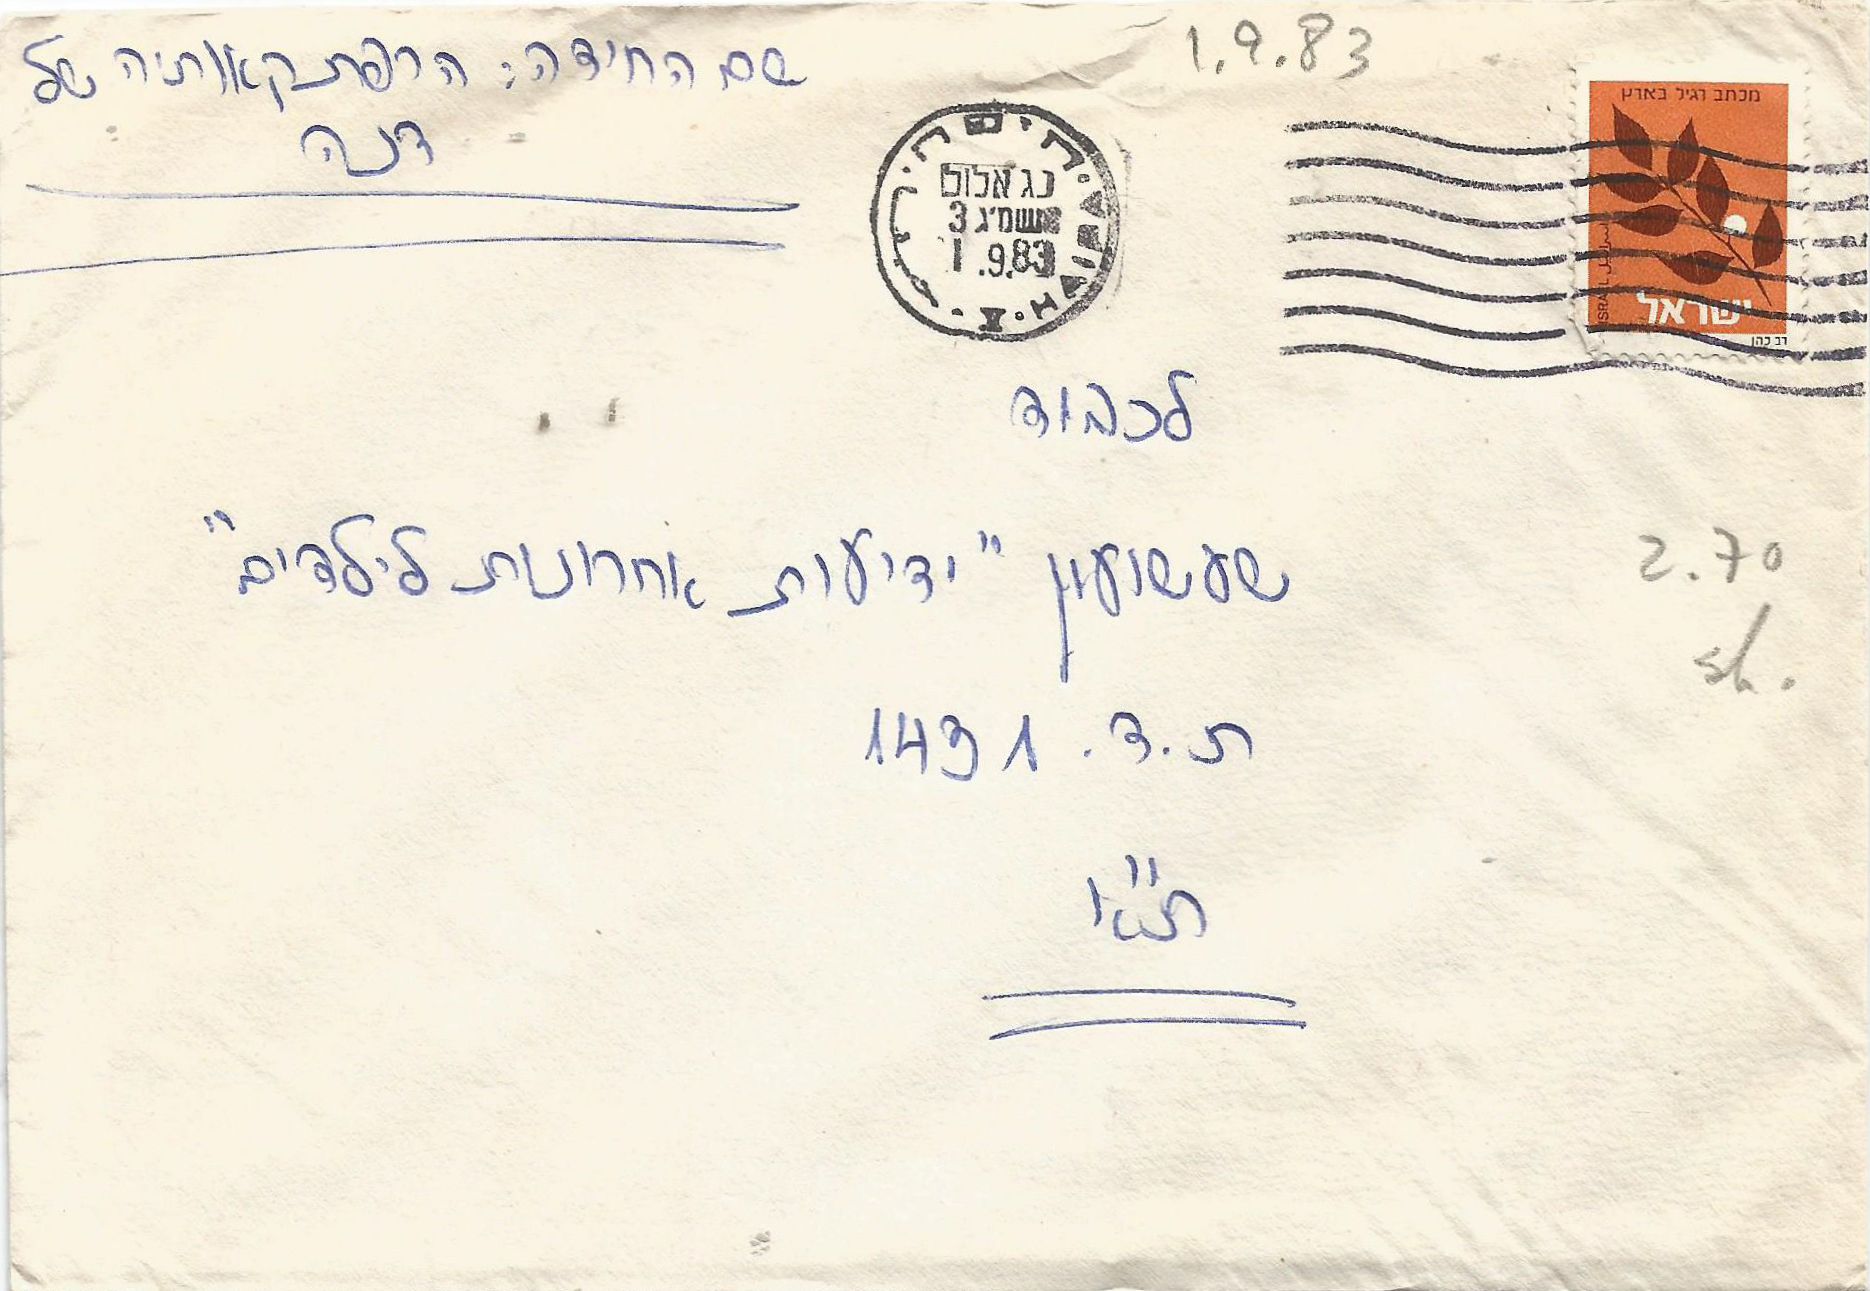 שם החידה: הרפתקאותיה של
דנה
1.9.83
כג אלול
תשמ״ג 3
1.9.83
חיפה
HAIFA
מכתב רגיל בארץ
ISRAEL
اسرائيل
ישראל
דב כהן
לכבוד
שעשועון "ידיעות אחרונות לילדים"
ת.ד. 1431
ת"א
2.70
sh.